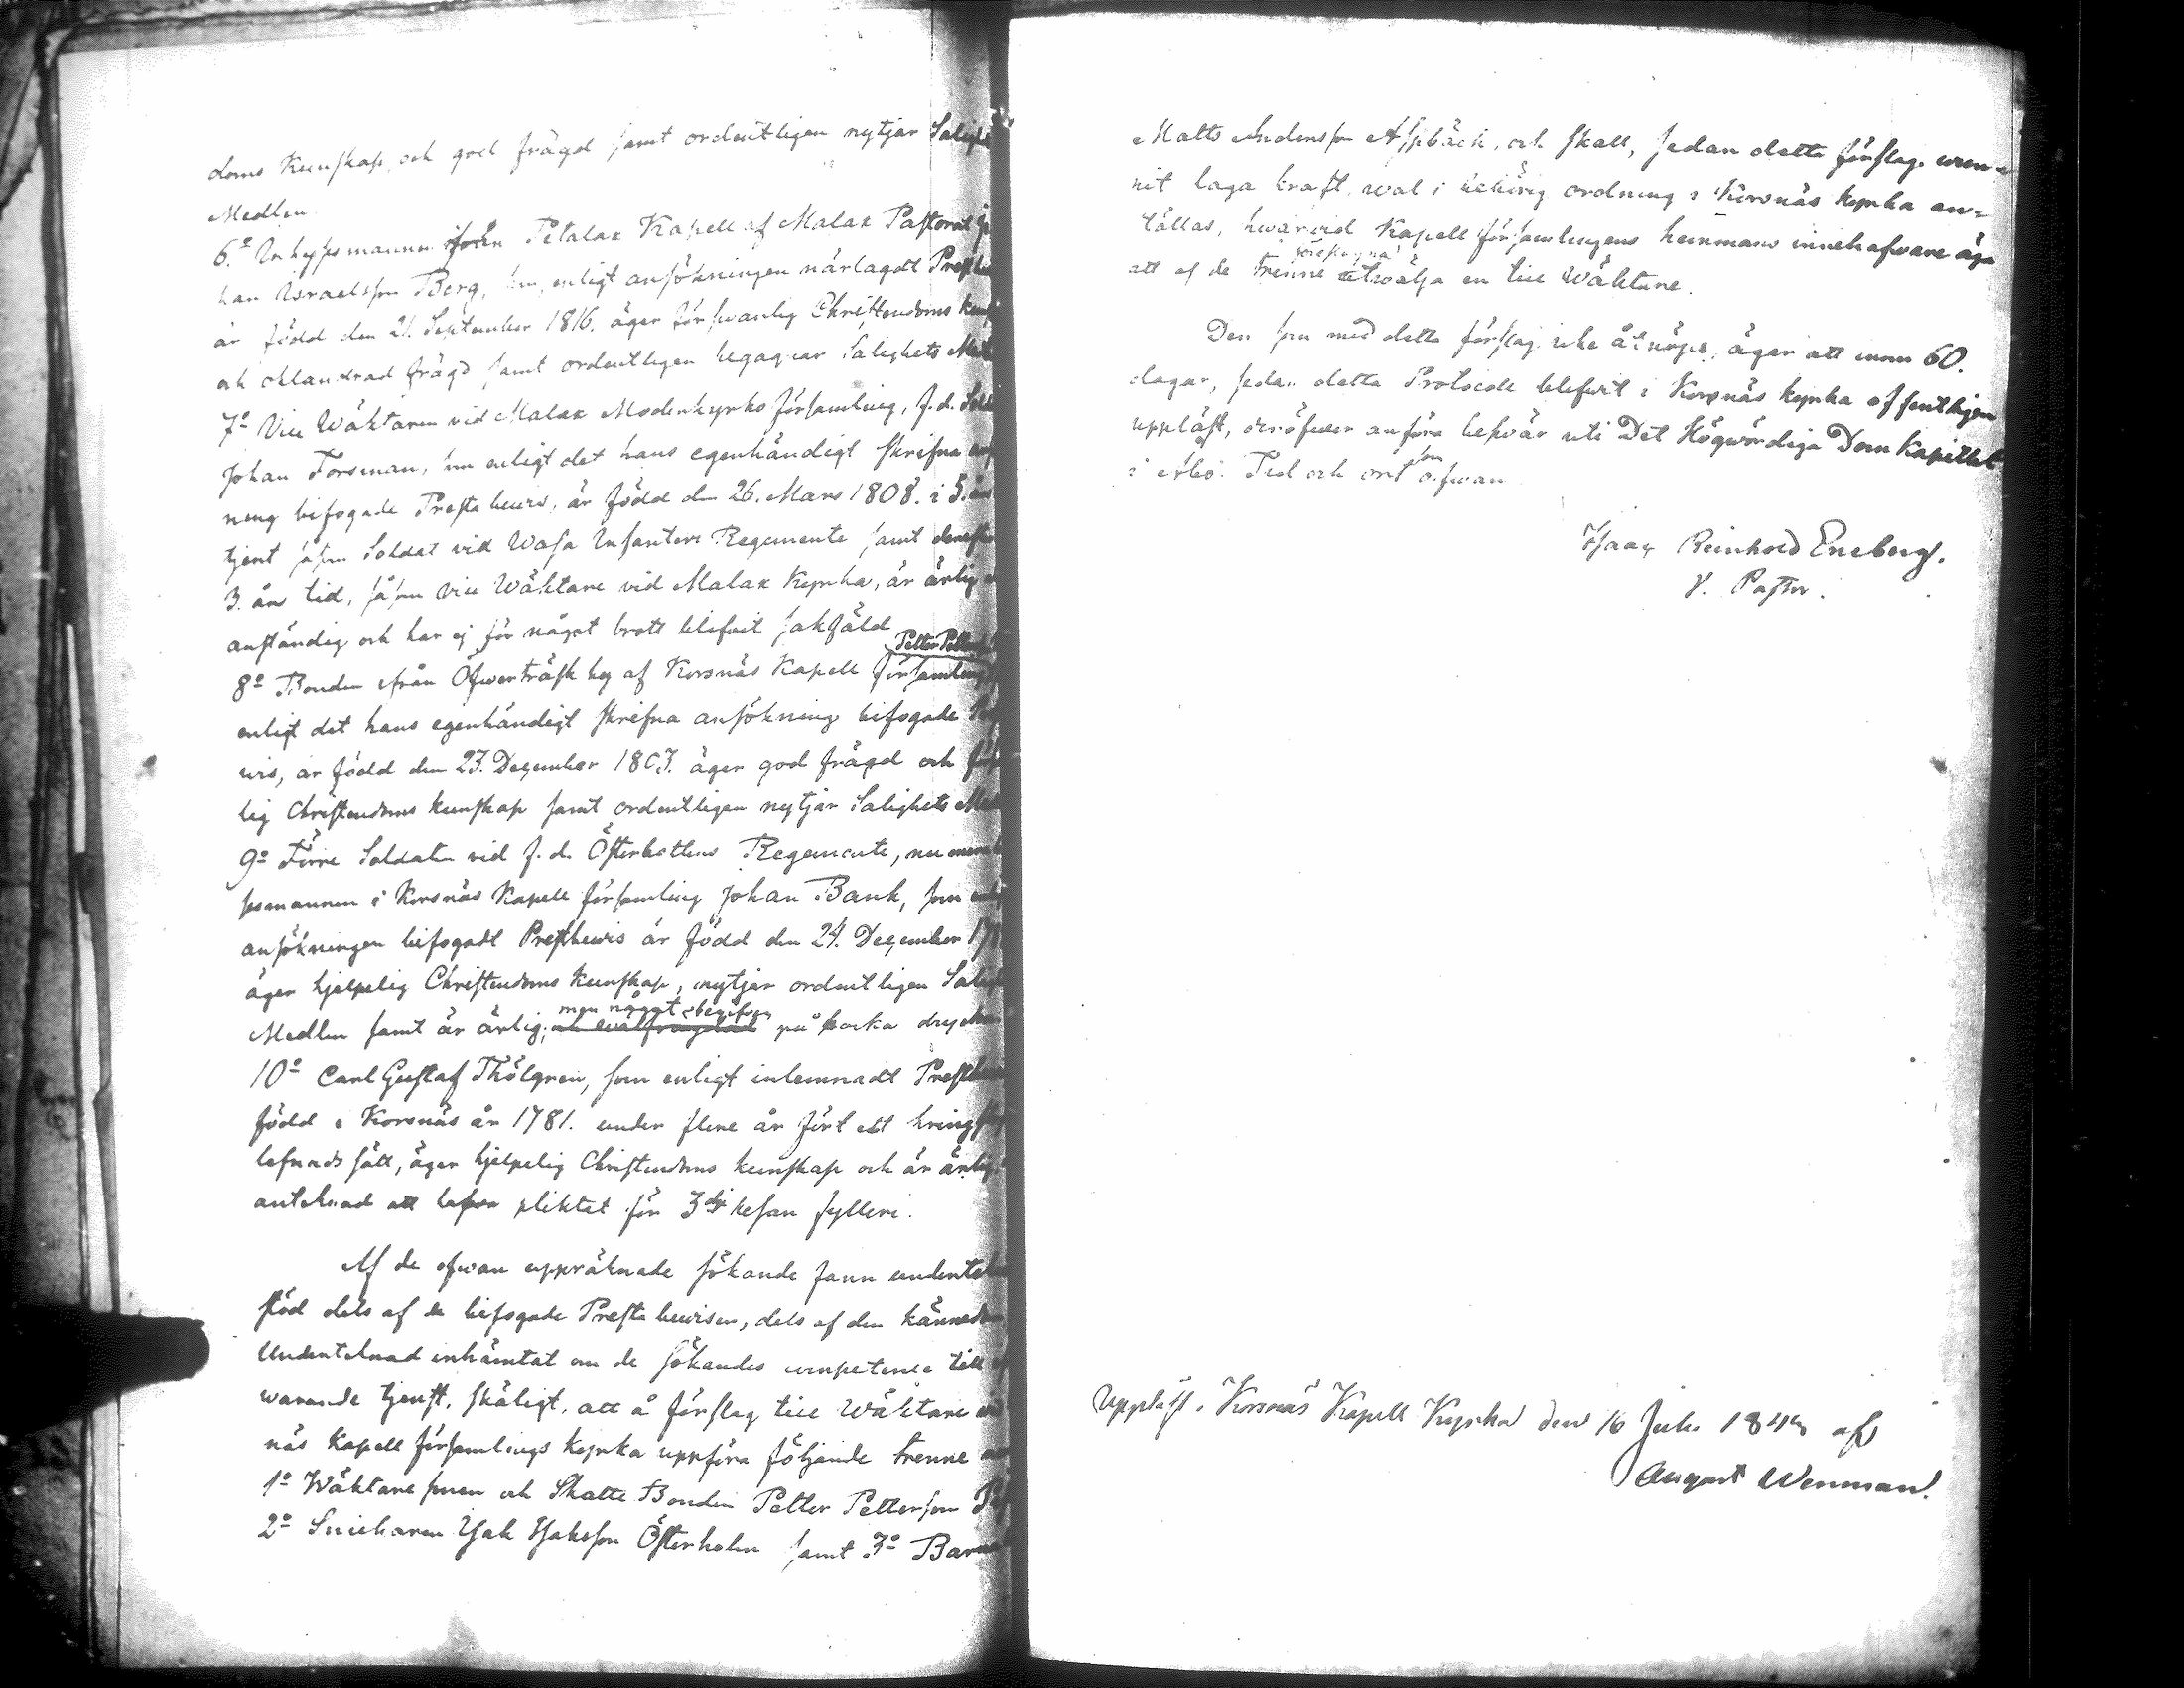 doms Kunskap, och god frägd samt ordentligen nytjar Salighe
Medlen
6:o Inhysesmannen ifrån Petalax Kapell af Malax Pastorat Jo
han Israelsson Berg, som, enligt ansökningen närlagdt Prestbe
är född den 21. September 1816. äger försvarlig Christendoms kun
och oklandrad frägd samt ordentligen begagnar Salighets Med
7:o Vice Wäktaren vid Malax Moderkyrko församling, f.d. Solda
Johan Forsman, som enligt det hans egenhändigt skrifna ans
ning bifogade Prestabevis, är född den 26. Mars 1808. i 5. års
tjent såsom Soldat vid Wasa Infanteri Regemente samt derefter
3. års tid, såsom Vice Wäktare vid Malax Kyrka, är ärlig o
anständig och har ej för något brott blifvit sakfäld
8:o Bonden ifrån Öfverträsk by af Korsnäs Kapell församling Petter Petter
enligt det hans egenhändigt skrifna ansökning bifogade
vis, är född den 23. December 1803. äger god frägd och för
lig Christendoms kunskap samt ordentligen nytjar Salighets Med
9:o Förre Soldaten vid f.d. Österbottens Regemente, nu mera
hysmannen i Korsnäs Kapell församling Johan Bank, som enli
ansökningen bifogadt Prestbevis är född den 24. December 17
äger hjelpelig Christendoms kunskap, nytjar ordentligen Sali
Medlen samt är ärlig, men något begifven på starka drycker
10:o Carl Gustaf Thölgren, som enligt inlemnadt Prestbevis
född i Korsnäs år 1781. under flere år fört ett kring
lefnads sätt, äger hjelpelig Christendoms kunskap och är ärlig
anteknad att hafva pliktat för 3:dje resan fylleri.
Af de ofvan uppräknade sökande fann undertek
stöd dels af de bifogade Presta bevisen, dels af den kännedom
Undertecknad inhämtat om de sökandes competence till
warande tjenst, skäligt, att å förslag till Wäktare vi
näs Kapell församlings kyrka uppföra följande trenne
1:o Wäktare sonen och Skatte Bonden Petter Petterson
2:o Snickaren Isak Isaksson Österholm samt 3:o Barn
Matts Andersson Aspbäck, och skall, sedan detta förslag vun-
nit laga kraft, wal i behörig ordning i Korsnäs kyrka an-
ställas, hvarvid Kapell församlingens hemmans innehafvare äga
att af de trenne föreslagna utwälja en till Wäktare.
Den som med detta förslag icke åtnöjes, äger att inom 60.
dagar, sedan detta Protocoll blifvit i Korsnäs kyrka offentligen
uppläst, deröfver anföra besvär uti Det Högwördiga Dom Kapitlet
i Åbo. Tid och ort som ofvan
Isaac Reinhold Eneberg.
V. Pastor.
Uppläst i Korsnäs Kapell Kyrka den 16 Juli af
August Wenman.